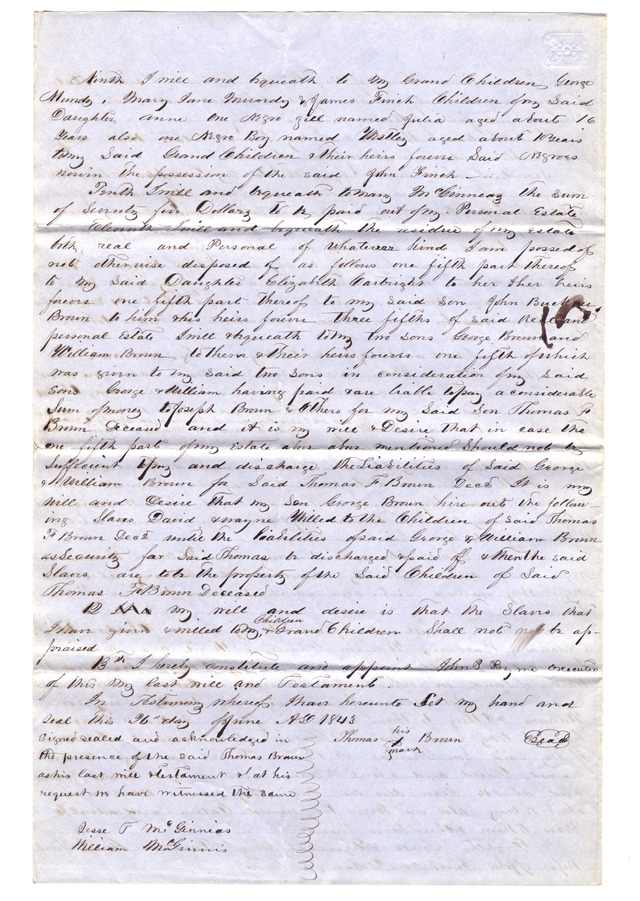 Ninth I will and bequeath to my Grand Children George
Mundy, Mary Jane Mundy & James Finch Children of my Said
Daughter, Anne one Negro girl named Julia aged about 16
years also one Negro Boy named Westley aged about 10 years
to my Said Grand Children & their heirs forever Said Negroes
now in the possession of the said John Finch
Tenth I will and bequeath to Mary McGinneas the Sum
of Seventy five Dollars to be paid out of my Personal Estate
Eleventh I will and bequeath the residue of my estate
both real and Personal of whatever kind I am possed of
not otherwise disposed of as follows one fifth part thereof
to my Said Daughter Elizabeth Cartright to her & her heirs
forever one fifth part thereof to my said Son John
Brown to him & his heirs forever three fifths of Said Real and
personal Estate I will & bequeath to my two Sons George Brown and
William Brown to them & their heirs forever one fifth of which
was given to my said two sons in consideration of my said
sons George & William having paid & are liable to pay a considerable
Sum of money to Joseph Brown & others for my Said Son Thomas F
Brown Deceased and it is my will & Desire that in case the
one fifth part of my Estate above mentioned Should not be
Sufficient to pay and discharge the Liabilities of Said George
& William Brown for Said Thomas F Brown Decd It is my
will and Desire that my Son George Brown hire out the follow-
ing Slaves David & Wayne Willed to the Children of Said Thomas
F Brown Decd until the liabilities of said George & William Brown
as Security for Said Thomas be discharged & paid off & then the said
Slaves are to be the property of the Said Children of Said
Thomas F Brown Deceased
12 My will and desire is that the Slaves that
Children
I have given & willed to my & Grand Children Shall not be ap-
praised
13th I hereby constitute and appoint John B executor
of this my last will and Testament.
In Testimony whereof I have hereunto Set my hand and
seal this 26th day of June AD 1843
Signed sealed and acknowledged in
the presence of the said Thomas Brown
as his last will & testament & at his
request we have witnessed the same
Thomas his X mark Brown Seal
Jesse T McGinnias
William McGinnis